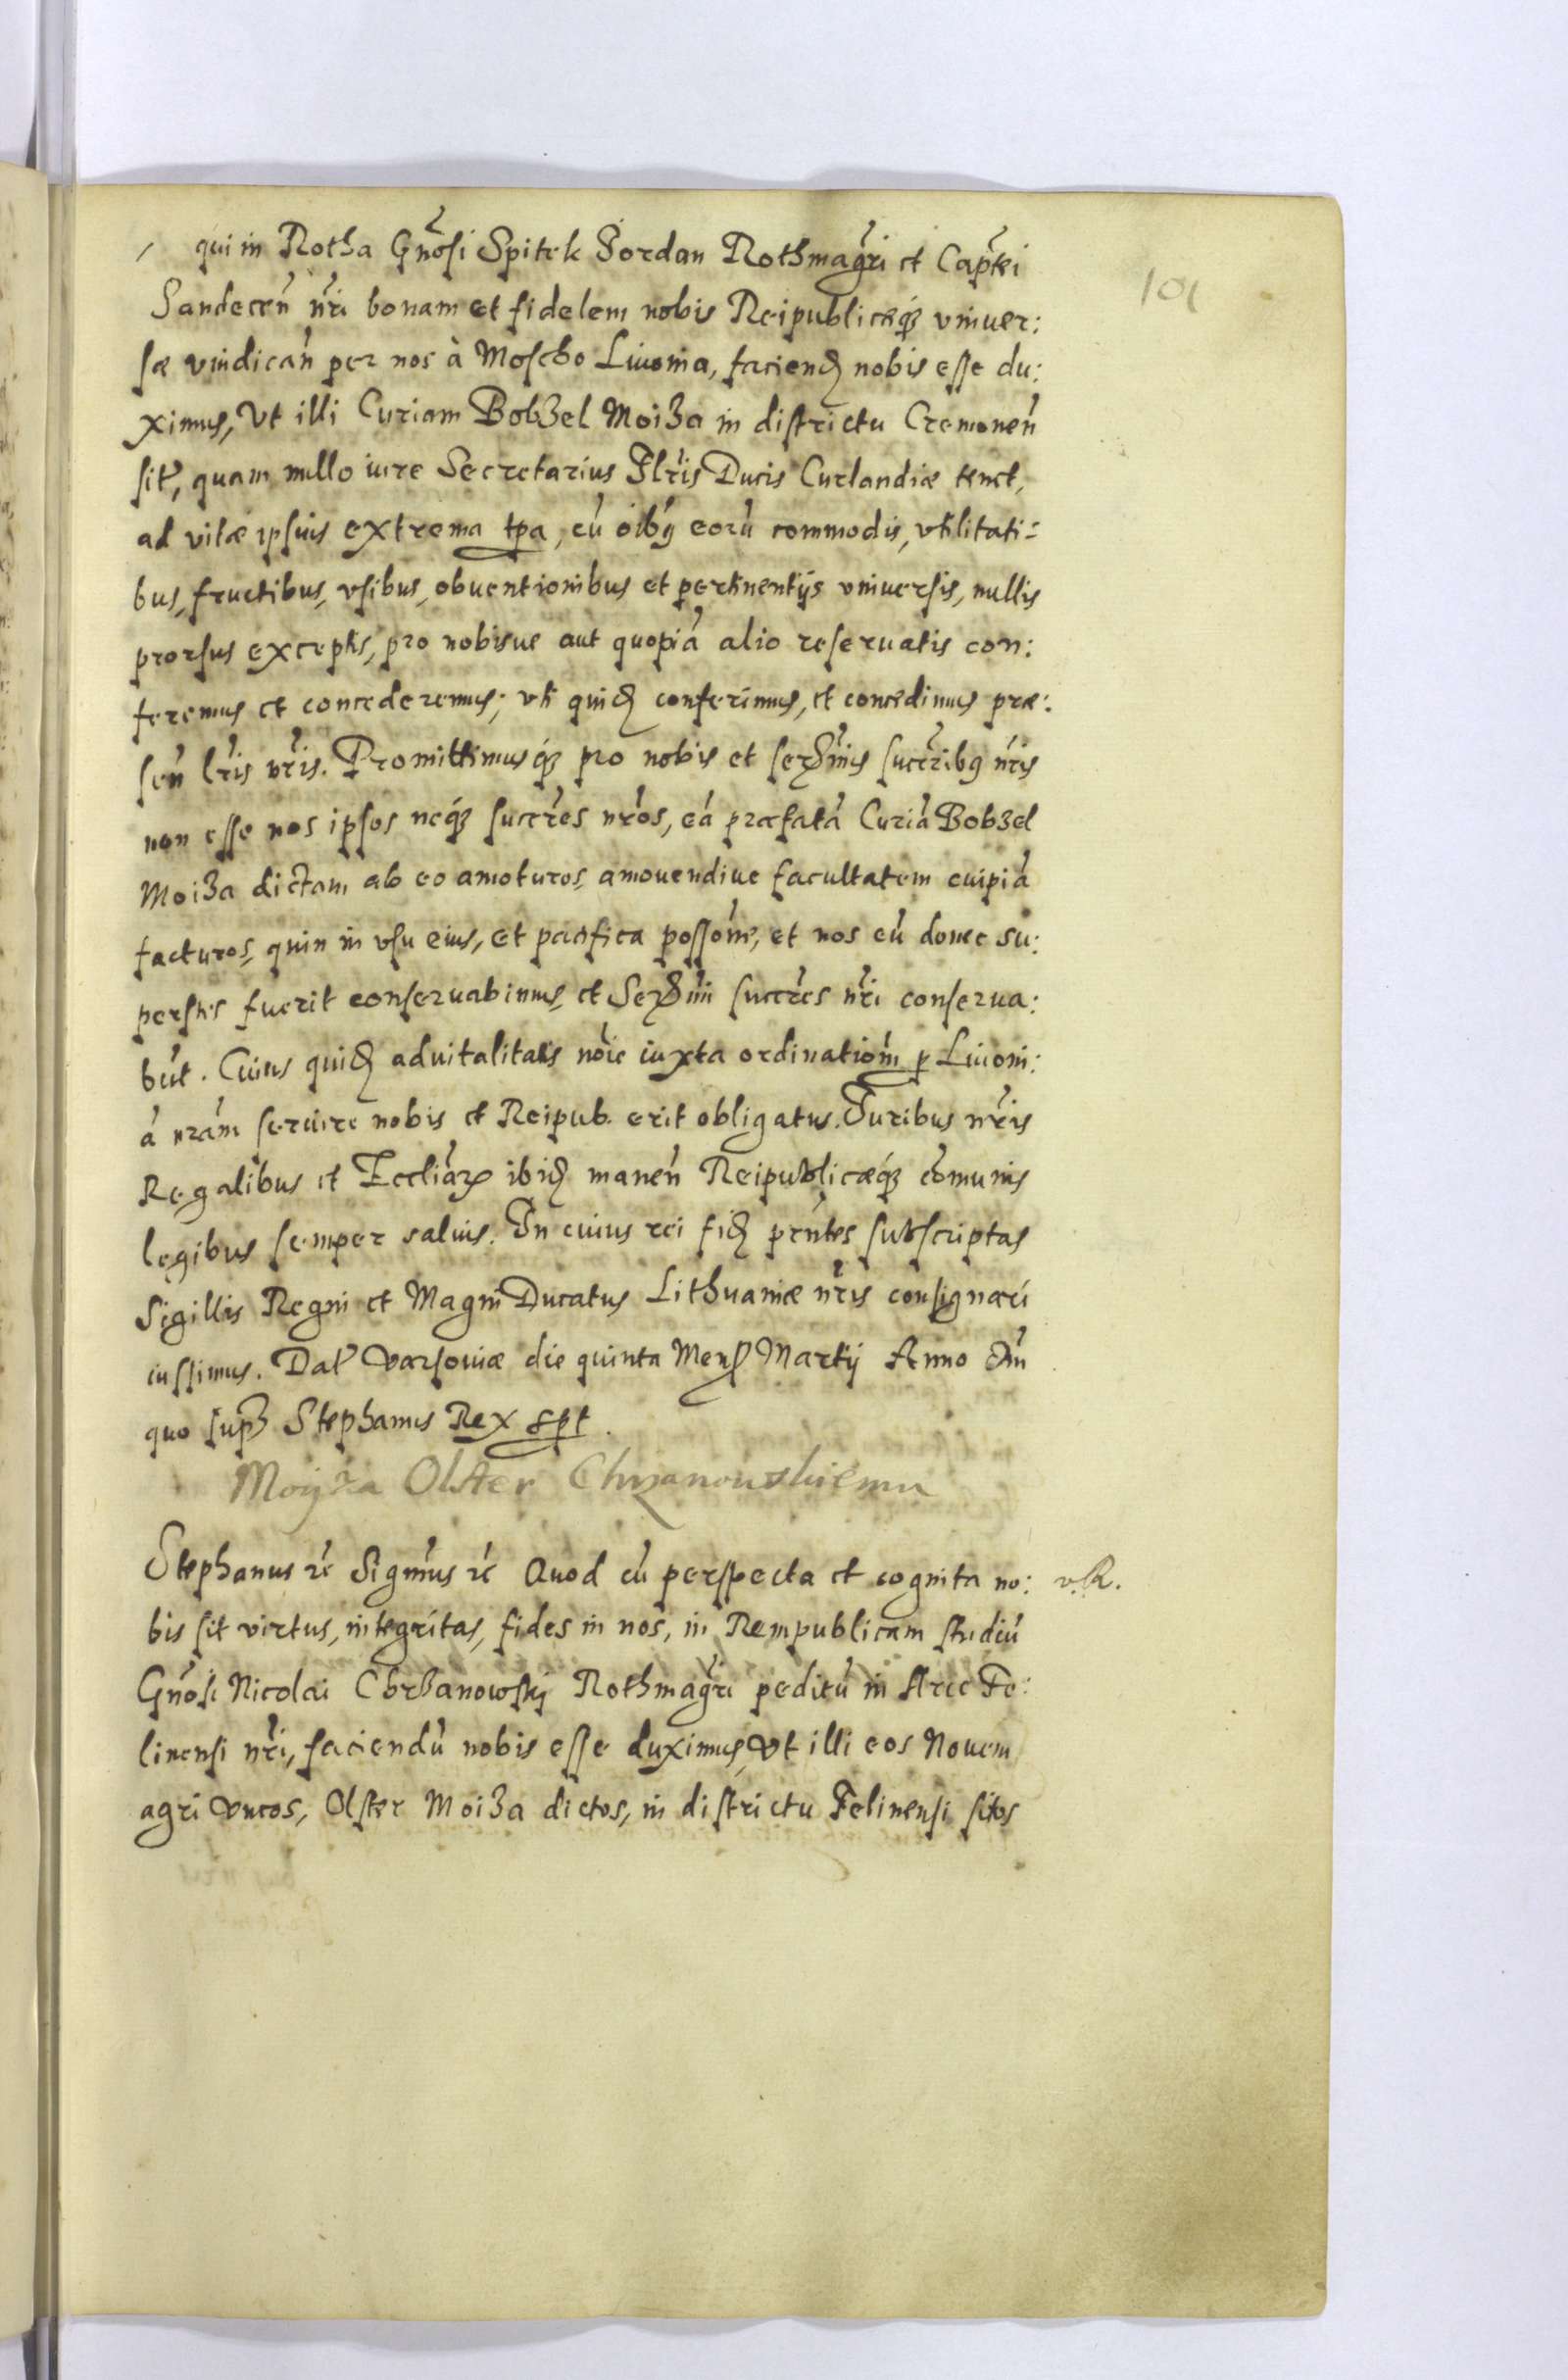 qui in Rotha Gnosi Spitek Jordan Rothmagri et Captei
101
Sandecen nri bonam et fidelem nobis Reipublicæq; vniuer:
sæ vindican per nos à Moscho Liuonia, faciend nobis esse du:
ximus, Vt illi Curiam Bobzel Moiza in districtu Cremonen
sit, quam nullo iure Secretarius Illris Ducis Curlandiæ tenet,
ad vitæ ipsius extrema tpa, cũ oibq eorũ commodis, vtilitati:
bus, fructibus, vsibus, obuentionibus et pertinentijs vniuersis, nullis
prorsus exceptis, pro nobisue aut quopiã alio reseruatis con:
feremus et concederemus; vti quid conferimus, et concedimus præ:
sen lris nris. Promittimusq; pro nobis et ser̃mis succribq nris
non esse nos ipsos neq; succres nros, eã præfatã Curiã Bobzel
Moiza dictam ab eo amoturos, amouendiue facultatem cuipiã
facturos, quin in vsu eius, et pacifica possone, et nos eũ donec su:
perstes fuerit conseruabimus, et Sermi succres nri conserua:
bũt. Cuius quid aduitalitatis noie iuxta ordinationm p Liuoni:
ã nram seruire nobis et Reipub. erit obligatus. Juribus nris
Regalibus et Eccliar ibid manen Reipublicæq; cõmunis
legibus semper saluis. In cuius rei fid prntes subscriptas
Sigillis Regni et Magni Ducatus Lithuaniæ nris consignari
iussimus. Dat Varsouiæ die quinta Mens Martij Anno Dni
quo sup Stephanus Rex spt.
Moyza Olster Chrzanowskiemu
Stephanus rc Sigmus rc Quod cũ perspecta et cognita no: v.R.
bis sit virtus, integritas, fides in nos, in Rempublicam studiũ
Gnosi Nicolai Chrzanowskj Rothmagri peditũ in Arce Fe:
linensi nri, faciendũ nobis esse duximus, Vt illi eos Nouem
agri Vncos, Olster Moiza dictos, in districtu Felinensi sitos